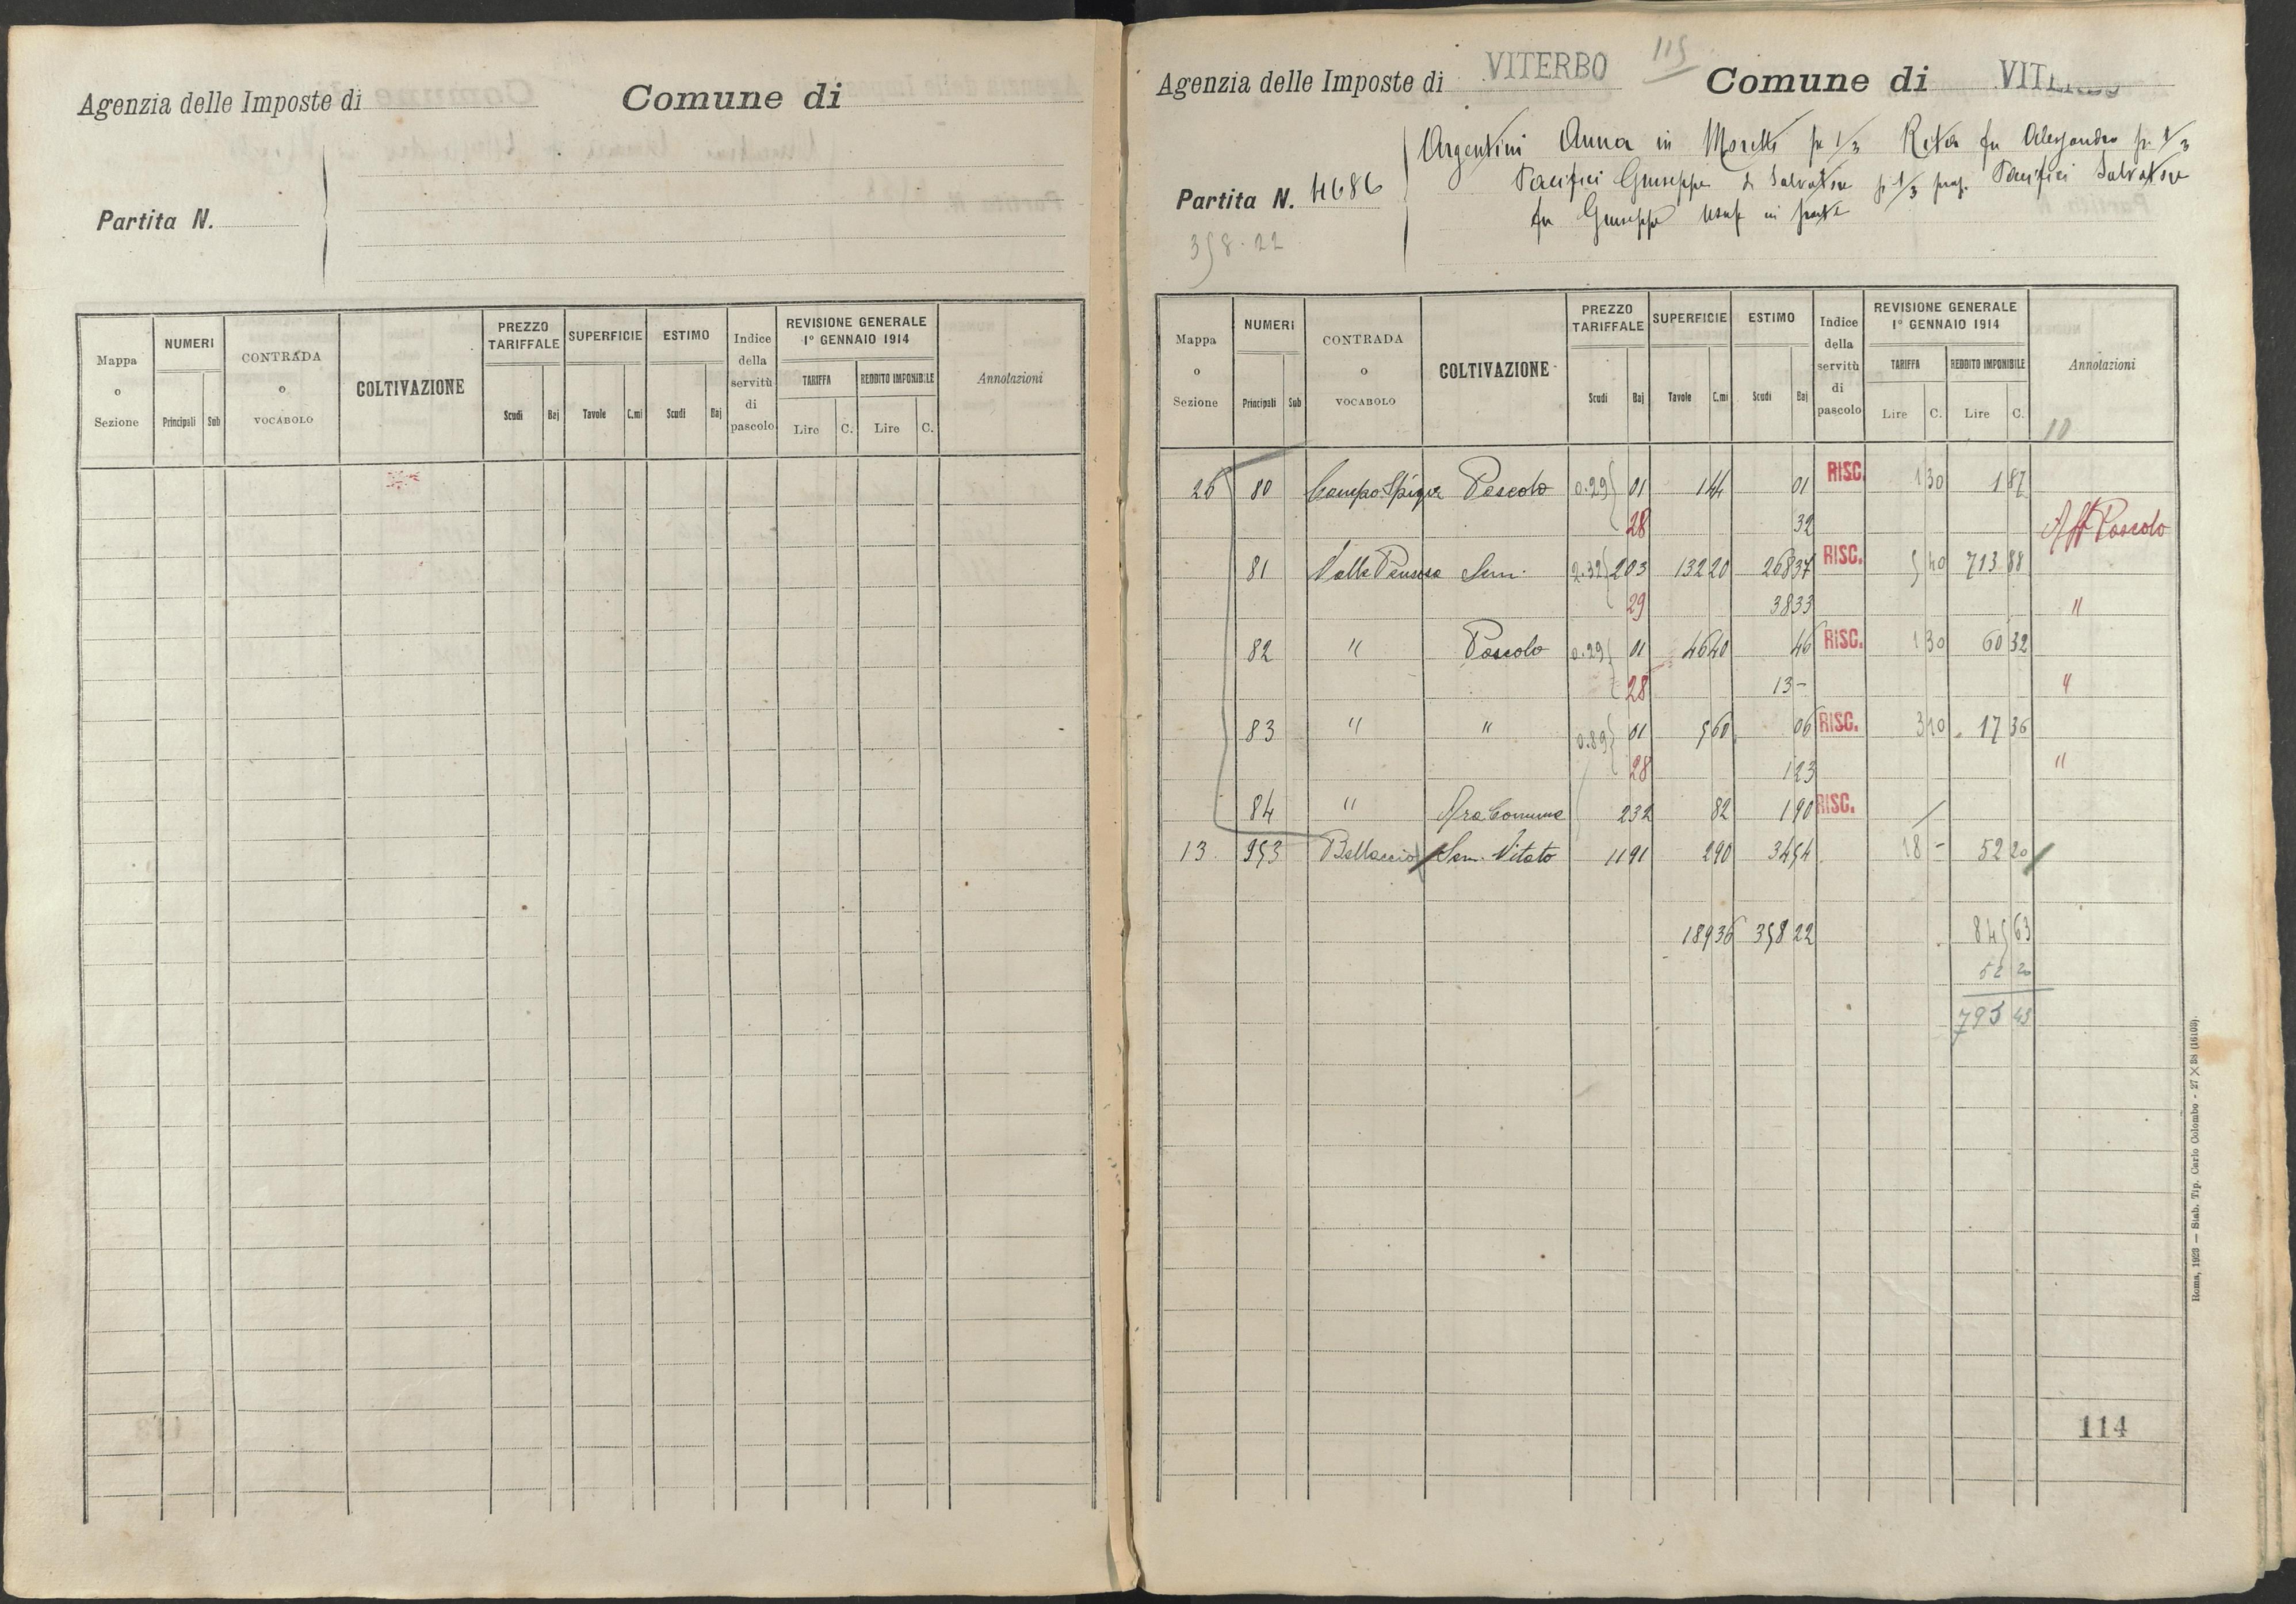 Agenzia delle Imposte di Comune di
Partita N.
Mappa o Sezione NUMERI Principali Sub CONTRADA o VOCABOLO COLTIVAZIONE PREZZO TARIFFALE Scudi Baj SUPERFICIE Tavole C.mi ESTIMO Scudi Baj Indice della servitù di pascolo REVISIONE GENERALE 1° GENNAIO 1914 TARIFFA Lire C. REDDITO IMPONIBILE Lire C. Annotazioni
Agenzia delle Imposte di VITERBO 115 Comune di VITERBO
Argentini Anna in Moretti p 1/3 Rita fu Alessandro p. 1/3
Partita N. 4686 Pacifici Giuseppe di Salvatore p 1/3 prop. Pacifici Salvatore
fu Giuseppe usuf in parte
358.22
Mappa o Sezione NUMERI Principali Sub CONTRADA o VOCABOLO COLTIVAZIONE PREZZO TARIFFALE Scudi Baj SUPERFICIE Tavole C.mi ESTIMO Scudi Baj Indice della servitù di pascolo REVISIONE GENERALE 1° GENNAIO 1914 TARIFFA Lire C. REDDITO IMPONIBILE Lire C. Annotazioni
10
26 80 Campo Spigo Pascolo 0.29 01 1 44 01 RISC. 1 30 1 87
28 32 Aff Pascolo
81 Valle Sem. 2.32 2 03 132 20 268 37 RISC. 5 40 713 88
29 38 33 "
82 " Pascolo 0.29 01 46 40 46 RISC. 1 30 60 32
28 13 - "
83 " " 0.89 01 5 60 06 RISC. 3 10 17 36
28 1 23 "
84 " Ara Comune 2 32 82 1 90 RISC. /
13 953 Bellaccio Sem. Vitato 11 91 2 90 34 54 18 - 52 20
189 36 358 22 845 63
52 20
793 43
114
Roma, 1923 — Stab. Tip. Carlo Colombo - 27 × 38 (16108).